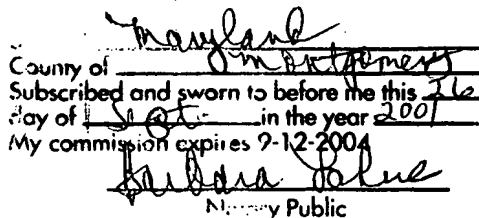 Maryland
County of Montgomery
Subscribed and sworn to before me this 26
day of Sept. in the year 2001
My commission expires 9-12-2004
Barbara
Notary Public